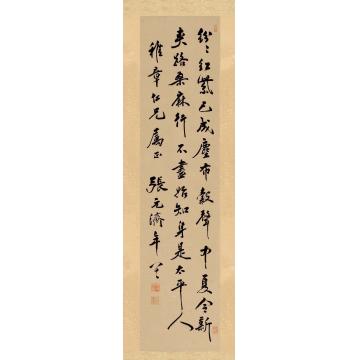 紛〻紅紫已成塵布穀聲中夏令新
夾路桑麻行不盡始知身是太平人
稚章仁兄屬正 張元濟年八三